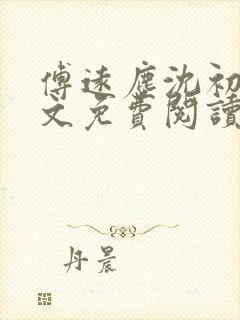 傅遠塵沈初
文免費閱讀
丹晨